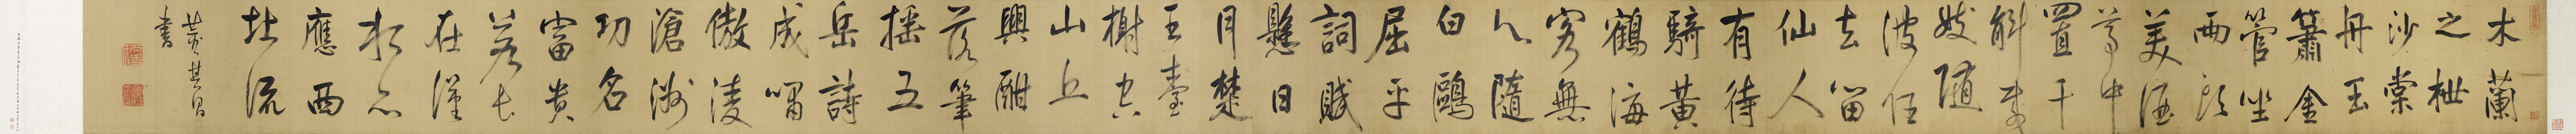 木蘭
之枻
沙棠
舟玉
簫金
管坐
兩頭
美酒
尊中
置千
斛載
妓隨
波任
去留
仙人
有待
騎黃
鶴海
客無
心隨
白鷗
屈平
詞賦
懸日
月楚
王臺
榭空
山丘
興酣
落筆
搖五
岳詩
成嘯
傲淩
滄洲
功名
富貴
若長
在漢
水亦
應西
北流
董其昌
書